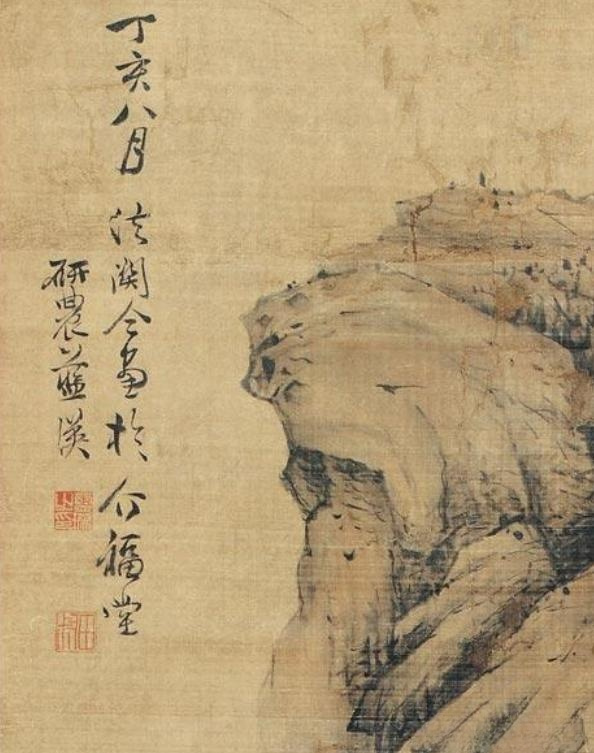 丁亥八月法關仝畫於介福堂
研農藍瑛